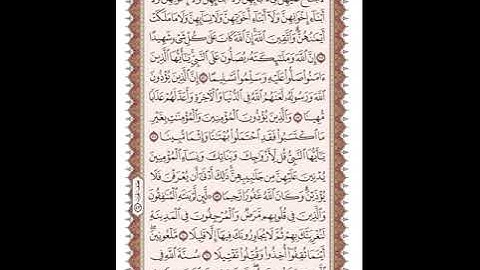 أَبْنَآءِ إِخْوَٰنِهِنَّ وَلَآ أَبْنَآءِ أَخَوَٰتِهِنَّ وَلَا نِسَآئِهِنَّ وَلَا مَا مَلَكَتْ
أَيْمَٰنُهُنَّ وَٱتَّقِينَ ٱللَّهَ إِنَّ ٱللَّهَ كَانَ عَلَىٰ كُلِّ شَىْءٍ شَهِيدًا
إِنَّ ٱللَّهَ وَمَلَٰٓئِكَتَهُۥ يُصَلُّونَ عَلَى ٱلنَّبِىِّ يَٰٓأَيُّهَا ٱلَّذِينَ
ءَامَنُوا۟ صَلُّوا۟ عَلَيْهِ وَسَلِّمُوا۟ تَسْلِيمًا إِنَّ ٱلَّذِينَ يُؤْذُونَ
ٱللَّهَ وَرَسُولَهُۥ لَعَنَهُمُ ٱللَّهُ فِى ٱلدُّنْيَا وَٱلْءَاخِرَةِ وَأَعَدَّ لَهُمْ عَذَابًا
مُّهِينًا وَٱلَّذِينَ يُؤْذُونَ ٱلْمُؤْمِنِينَ وَٱلْمُؤْمِنَٰتِ بِغَيْرِ
مَا ٱكْتَسَبُوا۟ فَقَدِ ٱحْتَمَلُوا۟ بُهْتَٰنًا وَإِثْمًا مُّبِينًا
يَٰٓأَيُّهَا ٱلنَّبِىُّ قُل لِّأَزْوَٰجِكَ وَبَنَاتِكَ وَنِسَآءِ ٱلْمُؤْمِنِينَ
يُدْنِينَ عَلَيْهِنَّ مِن جَلَٰبِيبِهِنَّ ذَٰلِكَ أَدْنَىٰٓ أَن يُعْرَفْنَ فَلَا
يُؤْذَيْنَ وَكَانَ ٱللَّهُ غَفُورًا رَّحِيمًا لَّئِن لَّمْ يَنتَهِ ٱلْمُنَٰفِقُونَ
وَٱلَّذِينَ فِى قُلُوبِهِم مَّرَضٌ وَٱلْمُرْجِفُونَ فِى ٱلْمَدِينَةِ
لَنُغْرِيَنَّكَ بِهِمْ ثُمَّ لَا يُجَاوِرُونَكَ فِيهَآ إِلَّا قَلِيلًا مَّلْعُونِينَ
أَيْنَمَا ثُقِفُوٓا۟ أُخِذُوا۟ وَقُتِّلُوا۟ تَقْتِيلًا سُنَّةَ ٱللَّهِ فِى